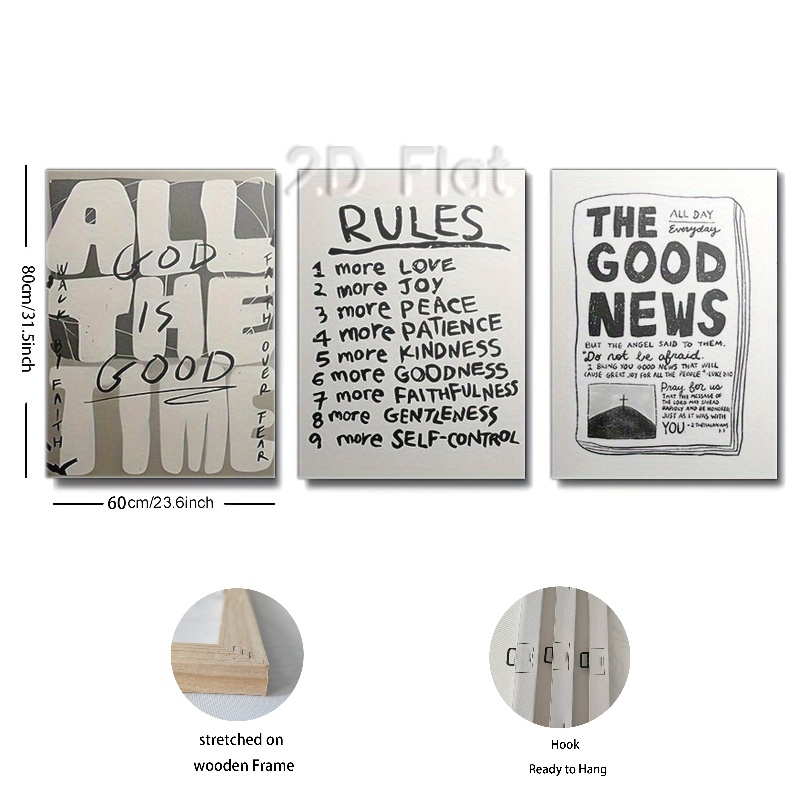 2.D Flat
ALL
THE
TIME
GOD
IS
GOOD
WALK BY FAITH
FAITH OVER FEAR
RULES
1 more LOVE
2 more JOY
3 more PEACE
4 more PATIENCE
5 more KINDNESS
6 more GOODNESS
7 more FAITHFULNESS
8 more GENTLENESS
9 more SELF-CONTROL
THE
ALL DAY
Everyday
GOOD
NEWS
BUT THE ANGEL SAID TO THEM,
"Do not be afraid.
I BRING YOU GOOD NEWS THAT WILL
CAUSE GREAT JOY FOR ALL THE PEOPLE" -LUKE 2:10
Pray for us
THAT THE MESSAGE OF
THE LORD MAY SPREAD
RAPIDLY AND BE HONORED,
JUST AS IT WAS WITH
YOU -2 THESSALONIANS
3:1
80cm/31.5inch
60cm/23.6inch
stretched on
wooden Frame
Hook
Ready to Hang